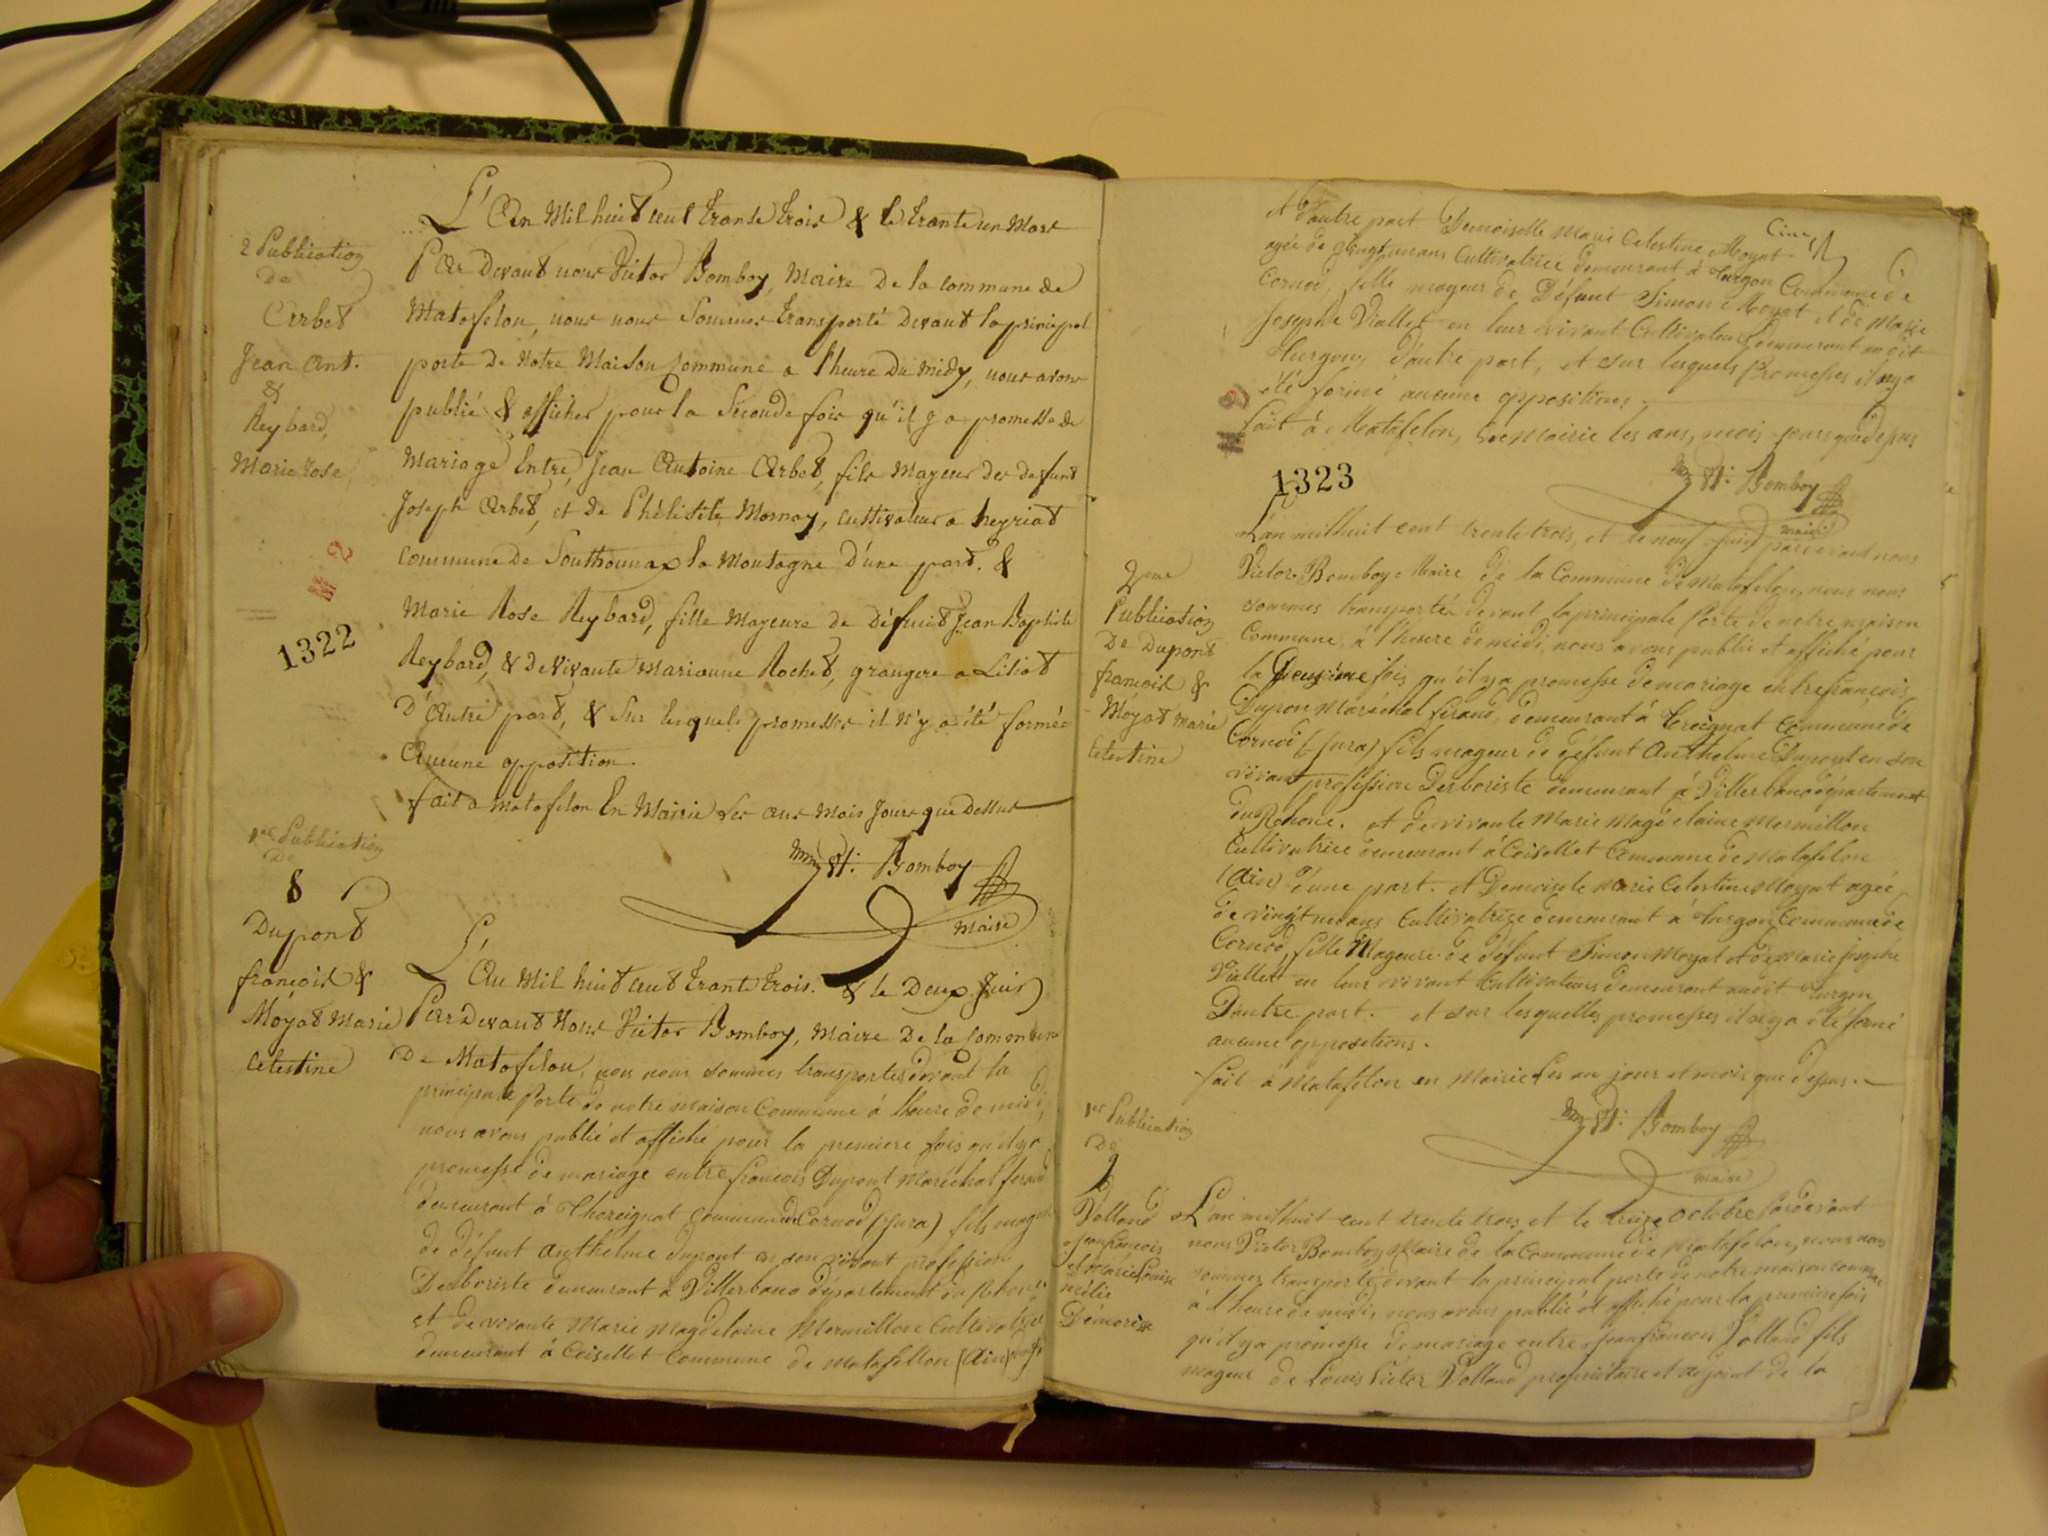 2 Publication
De
Arbet
Jean Ant.
&
Reybard,
Marie Rose,
L'An Mil huit cent trante trois & le trante un Mars
Par Devant nous Victor Bomboy, Maire De la commune de
Matafelon, nous nous Sommes transporté Devant la principal
porte de Notre Maison Commune a l'heure Du midy, nous avons
publié & afficher pour la Seconde fois qu'il y a promesse de
Mariage Entre, Jean Antoine Arbet, fils Mayeur des defunt
Joseph Arbet, et de Phélisité Mornay, cultivateur a heyriat
Commune de Sonthonnax la Montagne D'une part. &
Marie Rose Reybard, fille Mayeure de Défunt Jean Baptiste
Reybard, & De Vivante Marianne Rochet, grangere a Liliat
D'Autre part, & Sur lesquels promesses il n'y a été formée
Aucune opposition.
fait a Matafelon En Mairie Les ans Mois Jours que Dessus
M 2
1322
Vt: Bomboy
Maire
1re Publication
De
Dupont
françois &
Moyat Marie
Celestine
L'An Mil huit cent trante trois. & le Deux Juin
Par Devant Nous Victor Bomboy, Maire De la Commune
De Matafelon, nous nous sommes transportés devant la
principale Porte de notre Maison Commune à lheure de midi,
nous avons publié et affiché pour la premiere fois qu'il y a
promesse de mariage entre françois Dupont Maréchal ferand
demeurant à Thoreignat Commune de Cornod (Jura) fils mageur
de défunt Anthelme dupont en son vivant profession
Desboriste demeurant à Villerbane département du Rhone
et de vivante Marie Magdelaine Mermillon Cultivatrice
demeurant à Coisellet Commune de Matafellon (Ain)
Cinq
et d'autre part Demoiselle Marie Celestine Moyat
agée de vingt un ans Cultivatrice demeurant à Turgon Commune de
Cornod, fille mageur de Défunt Simon Moyat et de Marie
Josephe Viallet en leur vivant Cultivateurs demeurant au dit
Turgon, d'autre part, et sur lesquels Promesses il n'y a
été formé aucune oppositions.
fait à Matafelon, en Mairie les ans, mois jours que dessus
1323
Vt: Bomboy
maire
2me
Publication
De Dupont
françois &
Moyat Marie
Celestine
L'an mil huit cent trente trois, et le neuf Juin par devant nous
Victor Bomboy Maire de la Commune de Matafelon, nous nous
sommes transportés devant la principale Porte de notre maison
Commune, à l'heure de midi, nous avons publié et affiché pour
la Deuxième fois qu'il y a promesse de mariage entre françois
Dupon Maréchal ferand, demeurant à Toreignat Commune de
Cornod (Jura) fils mageur de défunt Anthelme Dupont en son
vivant profession Desboriste demeurant à Villerbane département
du Rhone. et de vivante Marie Magdelaine Mermillon
Cultivatrice demeurant à Coisellet Commune de Matafelon
(Ain) d'une part. et Demoisele Marie Celestine Moyat agée
de vingt un ans Cultivatrice demeurant à Turgon Commune de
Cornod, fille Mageure de défunt Simon Moyat et de Marie Josephe
Viallet en leur vivant Cultivateurs demeurant audit Turgon
Dautre part. et sur lesquelles promesses il n'y a été formé
aucune oppositions.
fait à Matafelon en Mairie Les an jour et mois que dessus.
Vt: Bomboy
maire
1re Publication
De
Volland
Jean françois
et Marie Louise
mélie
Démorisse
L'an mil huit cent trente trois et le treize octobre Pardevant
nous Victor Bomboy Maire de la Commune de Matafelon, nous nous
sommes transportés devant la principal porte de notre maison commune
à l'heure de midi, nous avons publié et affiché pour la premiere fois
qu'il y a promesse de mariage entre Jean françois Volland fils
mageur de Louis Victor Volland propriétaire et adjoint de la